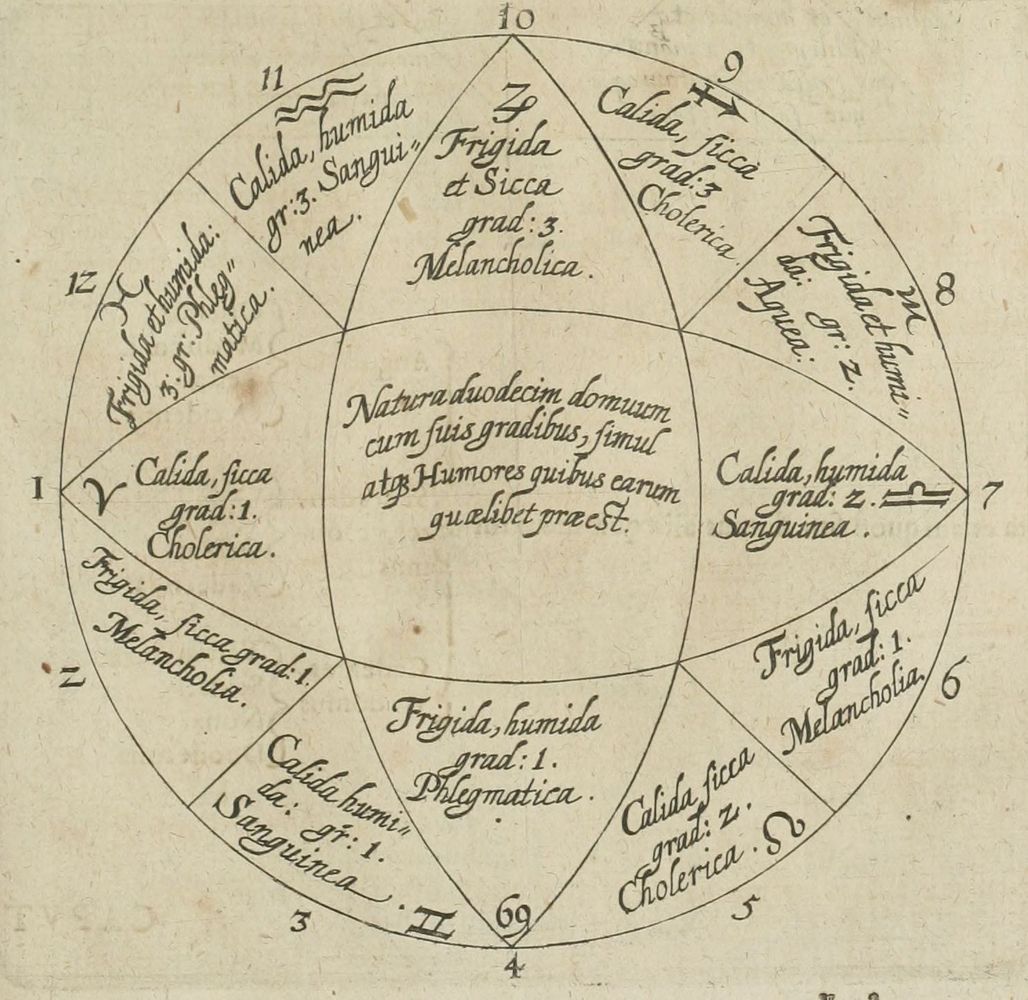 10
♑
Frigida
et Sicca
grad: 3.
Melancholica.
9
♐
Calida, sicca
grad: 3
Cholerica.
8
♏
Frigida et humi〃
da: gr: 2.
Aquea:
7
Calida, humida
grad: 2. ♎
Sanguinea.
6
Frigida, sicca
grad: 1.
Melancholia.
5
Calida sicca
grad: 2.
Cholerica. ♌
4
♋
Frigida, humida
grad: 1.
Phlegmatica.
3
Calida humi〃
da: gr: 1.
Sanguinea.
♊
2
Frigida, sicca grad: 1.
Melancholia.
1
♈ Calida, sicca
grad: 1.
Cholerica.
12
♓
Frigida et humida:
3: gr: Phleg〃
matica.
11
♒
Calida, humida
gr: 3. Sangui〃
nea.
Natura duodecim domuum
cum suis gradibus, simul
atqꝫ Humores quibus earum
quælibet præest.